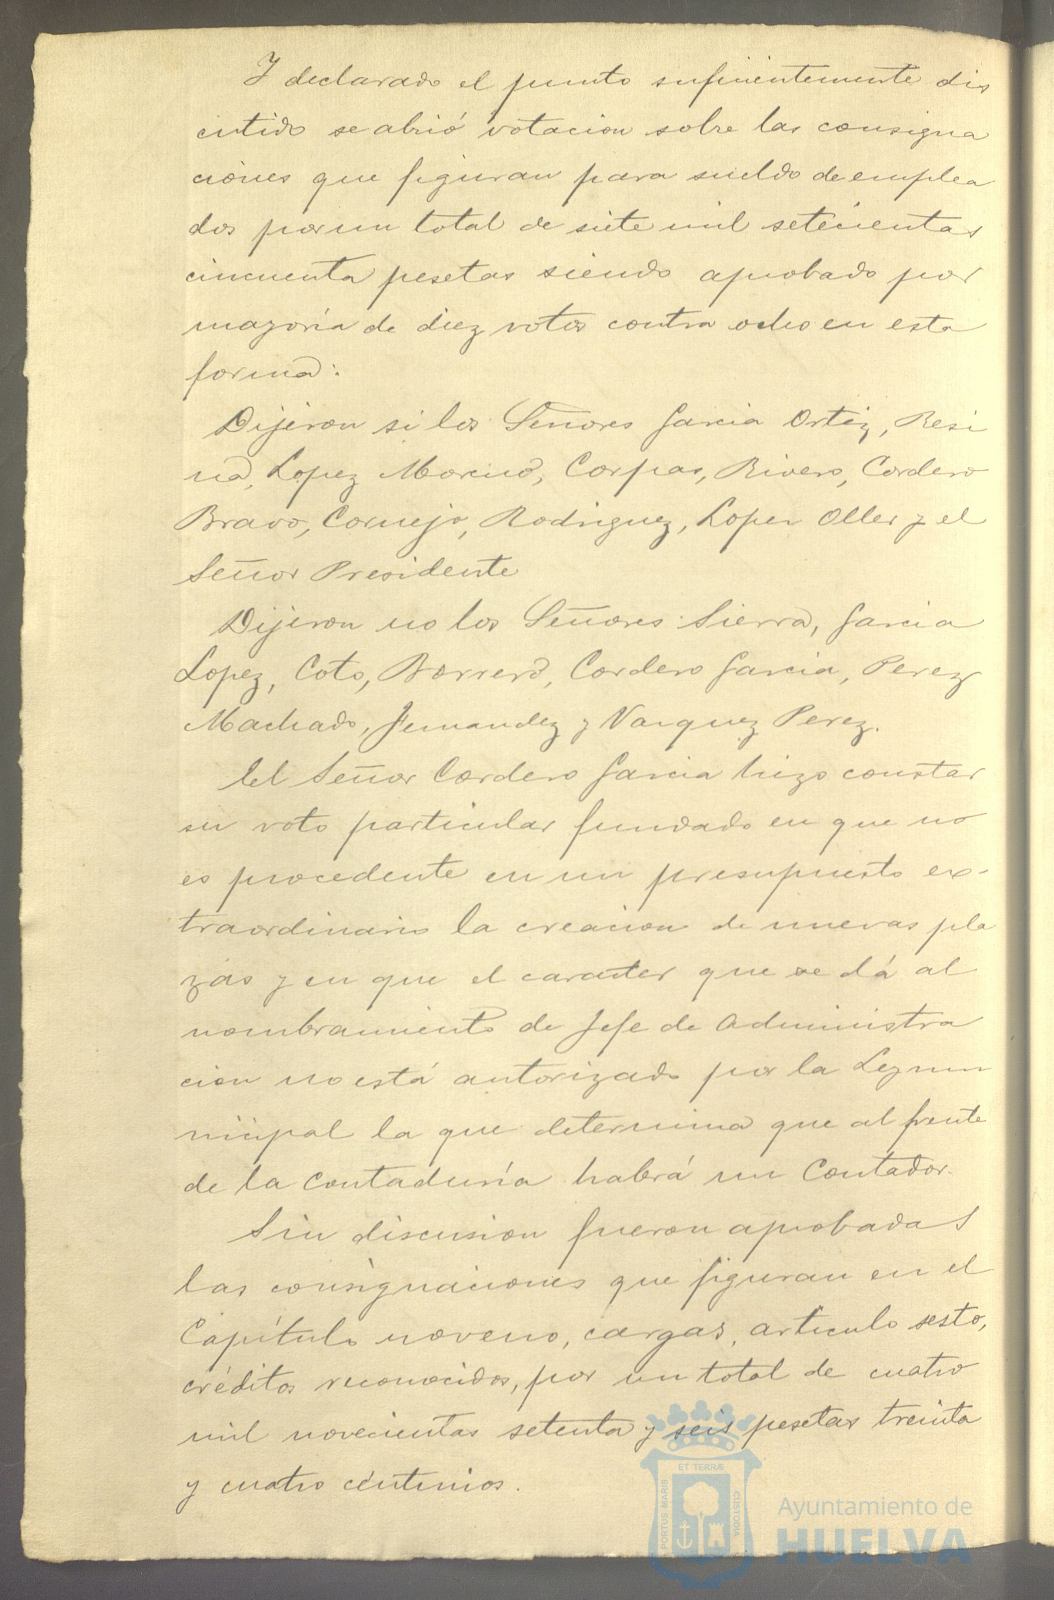 Y declarado el punto suficientemente dis
cutido se abrió votacion sobre las consigna
ciones que figuran para sueldo de emplea
dos por un total de siete mil setecientas
cincuenta pesetas siendo aprobado por
mayoria de diez votos contra ocho en esta
forma:
Dijeron si los Señores Garcia Ortiz, Resi
na, Lopez Moreno, Corpas, Rivero, Cordero
Bravo, Cornejo, Rodriguez, Lopez Oller y el
Señor Presidente
Dijeron no los Señores Sierra, Garcia
Lopez, Coto, Borrero, Cordero Garcia, Perez
Machado, Fernandez y Vazquez Perez.
El Señor Cordero Garcia hizo constar
su voto particular fundado en que no
es procedente en un presupuesto ex-
traordinario la creacion de nuevas pla
zas y en que el caracter que se dá al
nombramiento de Jefe de Administra
cion no está autorizado por la Ley mu
nicipal la que determina que al frente
de la Contaduría habrá un Contador.
Sin discusion fueron aprobadas
las consignaciones que figuran en el
Capítulo noveno, cargas, artículo sesto,
créditos reconocidos, por un total de cuatro
mil novecientas setenta y seis pesetas treinta
y cuatro céntimos.
PORTUS MARIS ET TERRÆ CUSTODIA
Ayuntamiento de
HUELVA